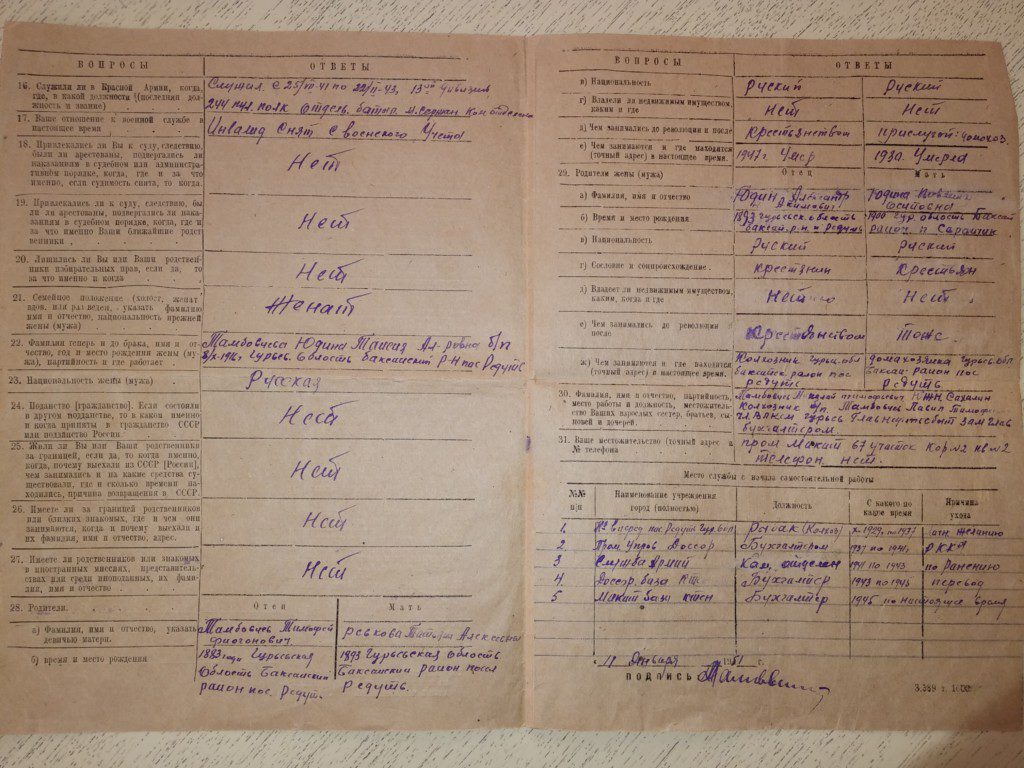 ВОПРОСЫ
ОТВЕТЫ
16. Служили ли в Красной Армии, когда,
где, в какой должности (последняя дол-
жность и звание)
Служил с 25/VI-41 по 22/II-43, 13ой дивизия
244 пул. полк отдель. батал. м. Сержан Ком отделения
17. Ваше отношение к военной службе в
настоящее время
Инвалид Снят с военского Учета
18. Привлекались ли Вы к суду, следствию,
были ли арестованы, подвергались ли
наказаниям в судебном или администра-
тивном порядке, когда, где и за что
именно, если судимость снята, то когда.
Нет
19. Привлекались ли к суду, следствию, бы-
ли ли арестованы, подвергались ли нака-
заниям в судебном порядке, когда, где и
за что именно Ваши ближайшие родст-
венники
Нет
20. Лишались ли Вы или Ваши родствен-
ники избирательных прав, если да, то
за что именно и когда
Нет
21. Семейное положение (холост, женат
вдов. или разведен, указать фамилию
имя и отчество, национальность прежней
жены (мужа)
Женат
22. Фамилия теперь и до брака, имя и от-
чество, год и место рождения жены (му-
жа), партийность и где работает
Тамбовцева Юдина Таисия Ал-ровна б/п
Гурьев. Область баксайский р-н пос Редуть
23. Национальность жены (мужа)
Русская
24. Подданство [гражданство]. Если состояли
в другом подданстве, то в каком именно
и когда приняты в гражданство СССР
или подданство России
Нет
25. Жили ли Вы или Ваши родственники
за границей, если да, то когда именно,
когда, почему выехали из СССР [России],
чем занимались и на какие средства су-
ществовали, где и сколько времени на-
ходились, причина возвращения в СССР.
Нет
26. Имеете ли за границей родственников
или близких знакомых, где и чем они
занимаются, когда и почему выехали и
их фамилия, имя и отчество, адрес.
Нет
27. Имеете ли родственников или знакомых
в иностранных миссиях, представительст-
вах или среди иноподданных, их фами-
лии, имя и отчество
Нет
28. Родители.
Отец
Мать
а) Фамилия, имя и отчество, указать
девичью матери.
Тамбовцев Тимофей
Татьяна Алексеевна
б) время и место рождения
1883 года Гурьевская
Область Баксайский
район пос. Редут.
1893 Гурьевская область
Баксайский район посел
Редуть.
ВОПРОСЫ
ОТВЕТЫ
в) Национальность
Руский
Руский
г) Владели ли недвижимым имуществом,
каким и где
Нет
Нет
д) Чем занимались до революции и после
крестьянством
прислугой: домохоз.
е) Чем занимаются и где находятся
(точный адрес) в настоящее время.
1947г Умер
Умерла
29. Родители жены (мужа)
Отец
Мать
а) Фамилия, имя и отчество
Юдин Александр
Юдина
б) Время и место рождения
1893 Гурьевск. область
баксай. р.н. п Редуть
1900 Гур. область Баксай
район п Сарайчик
в) Национальность
Руский
Руский
г) Сословие и соцпроисхождение
крестянин
крестьян
д) Владеет ли недвижимым имуществом,
каким, когда и где
Нет
Нет
е) Чем занимались до революции
и после
Крестьянством
Тоже
ж) Чем занимаются и где находятся
(точный адрес) в настоящее время.
Колхозник Гурьев. обл
баксайск. район пос
редуть
домахозяика Гурьев. обл
баксай. район пос
редуть
30. Фамилия, имя и отчество, партийность,
место работы и должность, местожитель-
ство Ваших взрослых сестер, братьев, сы-
новей и дочерей.
Тамбовцев Тимофеевич Сахалин
Колхозник б/п Тамбовцев Павил Тимофе
Гурьев Главнефтесбыт Зам Глав
бухгалтером
31. Ваше местожительство (точный адрес и
№ телефона
пром Макат 67 участок Кор №2 кв №2
телефон нет.
Место службы с начала самостоятельной работы
№№
п/п
Наименование учреждения
город (полностью)
Должность
С какого по
какое время
Причина
ухода
1.
Рыбак (колхоз)
желанию
2
Пром Упров Доссор
Бухгалтером
1937 по 1941
РККА
3
Служба Армий
Ком. отделен
1941 по 1943
по Ранению
4
Доссор. база
Бухгалтер
1943 по 1945
перевод
5
Макат база
Бухгалтер
1945 по настоящее время
„11 Января 1951 г.
ПОДПИСЬ